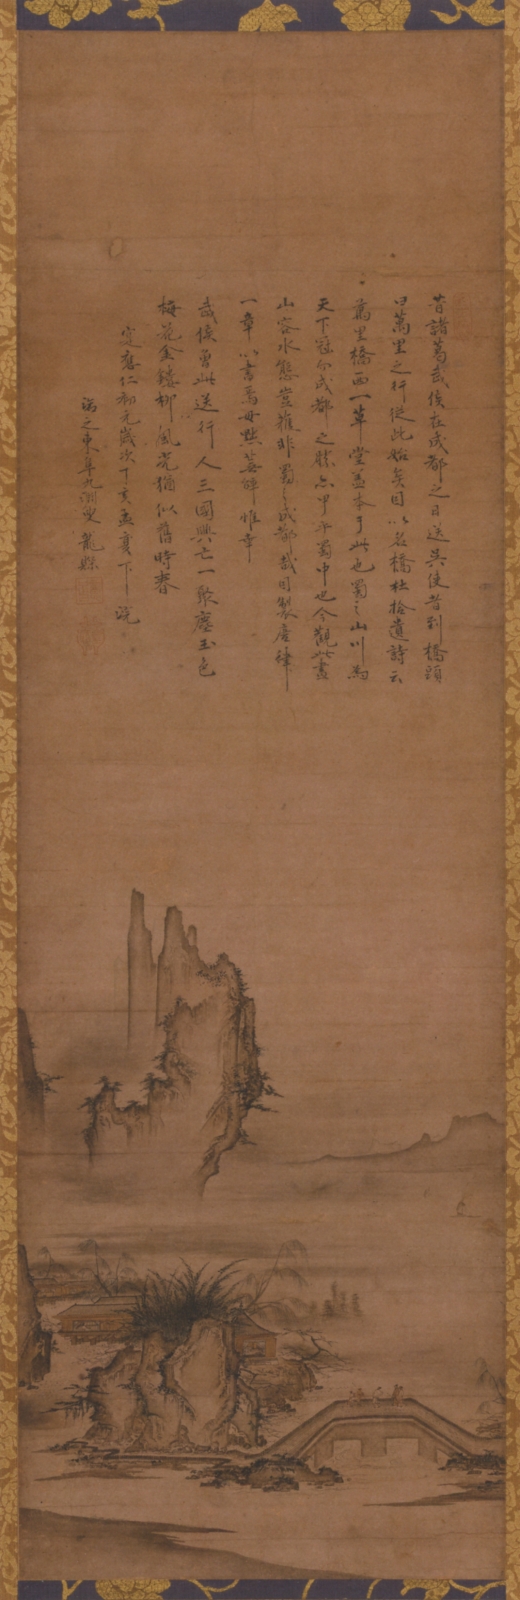 昔諸葛武侯在成都之日送吳使者到橋頭
曰萬里之行從此始矣因以名橋杜拾遺詩云
萬里橋西一草堂蓋本于此也蜀之山川為
天下冠而成都之勝亦甲乎蜀中也今觀此畫
山容水態豈難非蜀之成都哉因製唐律
一章以書焉
武侯曾此送行人三國興亡一聚塵玉色
梅花金縷柳風光猶似舊時春
應仁初元歲次丁亥孟夏下浣
瑞之東阜九淵叟龍賝